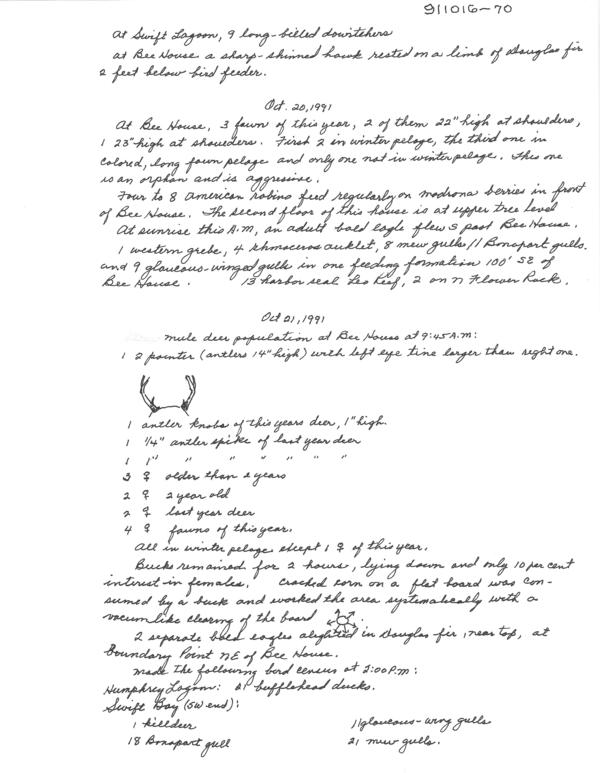 911016-70
At Swift Lagoon, 9 long-billed dowitchers
at Bee House a sharp-skinned hawk rested on a limb of Douglas fir
2 feet below bird feeder.
Oct. 20, 1991
At Bee House, 3 fawn of this year, 2 of them 22" high at shoulders,
1 23" high at shoulders. First 2 in winter pelage, the third one in
colored, long fawn pelage and only one not in winter pelage. This one
is an orphan and is aggressive.
Four to 8 American robins feed regularly on madrona berries in front
of Bee House. The second floor of this house is at upper tree level
At sunrise this A.M, an adult bald eagle flew S past Bee House.
1 western grebe, 4 rhinoceros auklet, 8 mew gulls 11 Bonapart gulls.
and 9 glaucous-winged gulls in one feeding formation 100' SE of
Bee House. 13 harbor seal Leo Reef, 2 on N Flower Rock.
Oct 21, 1991
mule deer population at Bee House at 9:45 A.M:
1 2 pointer (antlers 14" high) with left eye tine larger than right one.
1 antler knobs of this years deer, 1" high.
1 1/4" antler spike of last year deer
1 1" " " " " " "
3 ♀ older than 2 years
2 ♀ 2 year old
2 ♀ last year deer
4 ♀ fawns of this year.
All in winter pelage except 1 ♀ of this year.
Bucks remained for 2 hours, lying down and only 10 per cent
interest in females. Cracked corn on a flat board was con-
sumed by a buck and worked the area systematically with a
vacumlike clearing of the board
2 separate bald eagles alighted in Douglas fir, near top, at
Boundary Point NE of Bee House.
made the following bird census at 2:00 P.M:
Humphrey Lagoon: 21 bufflehead ducks.
Swift Bay (SW end):
1 killdeer 11 glaucous-wing gulls
18 Bonapart gull 21 mew gulls.